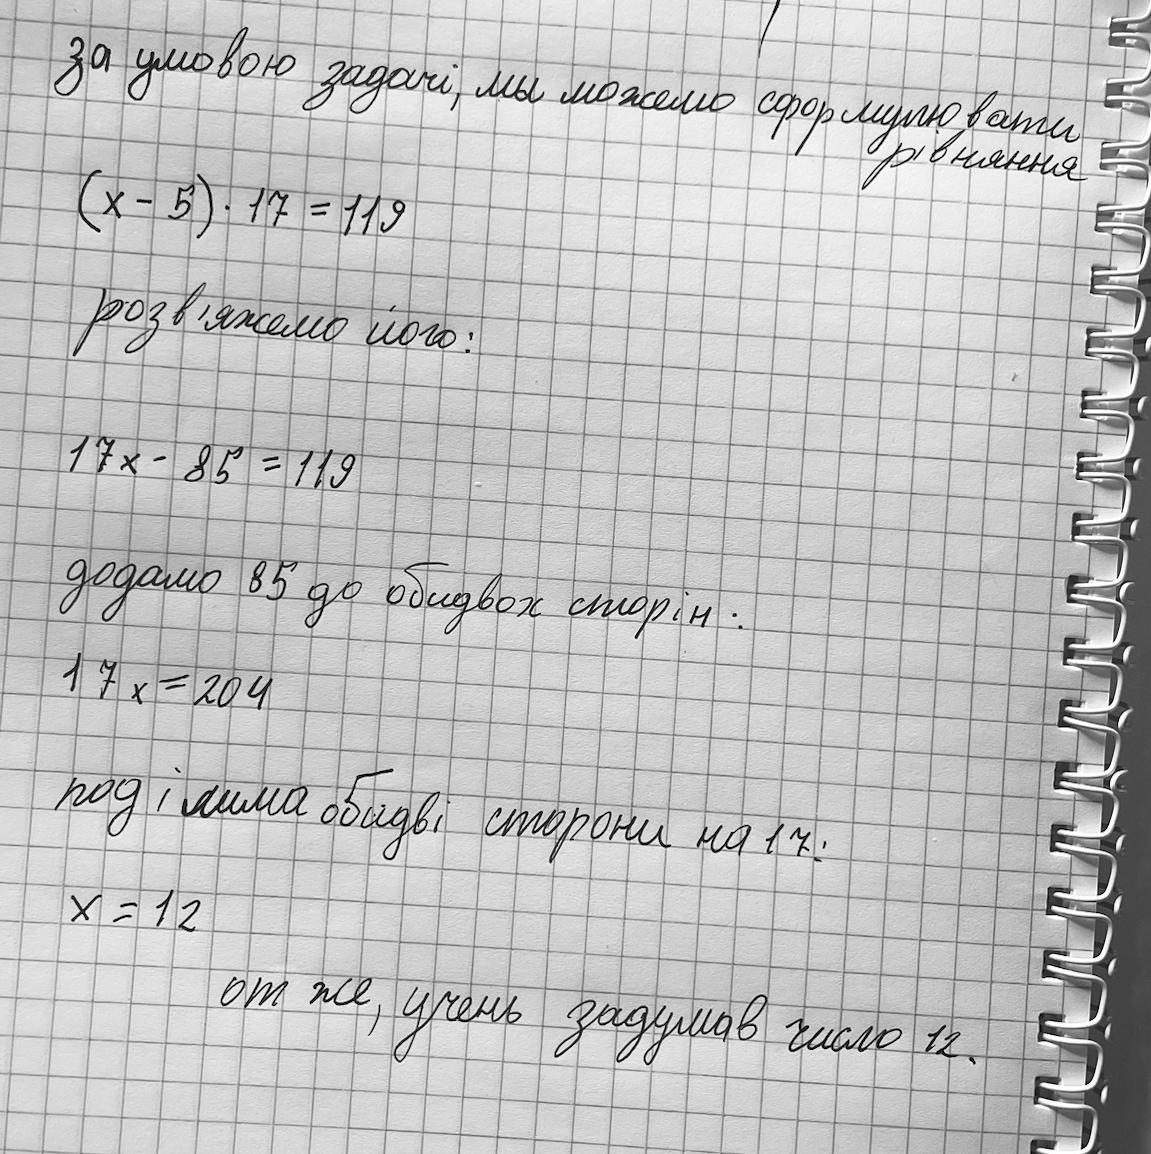 за умовою задачі, мы можемо сформулювати
рівняння
(x - 5) · 17 = 119
розв'яжемо його:
17x - 85 = 119
додамо 85 до обидвох сторін:
17x = 204
поділима обидві сторони на 17:
x = 12
от же, учень задумав число 12.